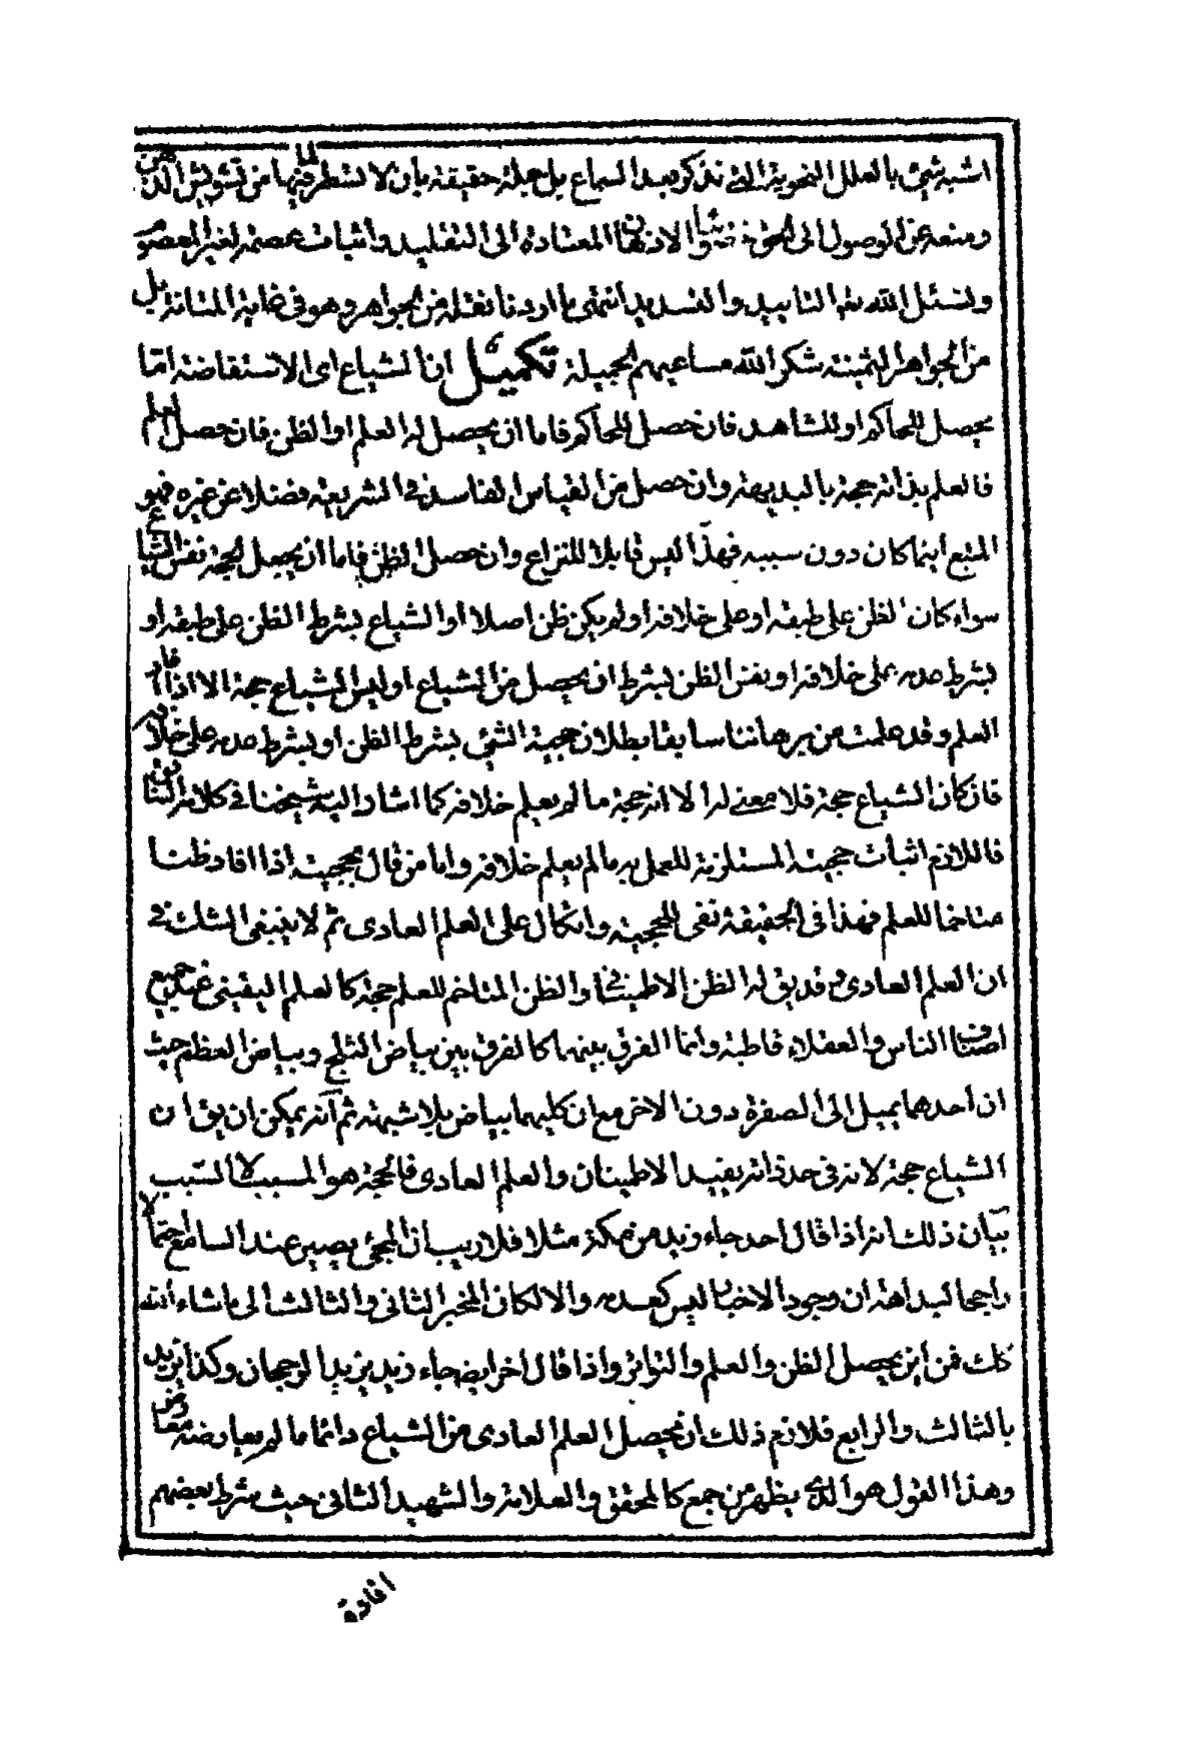 اشبه شئ بالعلل النحوية التى تذكر بعد السماع بل جعله حقيقة بان لا تسطر لما فيها من تشويش الذهن
ومنعه عن الوصول الى الحق خصوصا الاذهان المعتادة الى التقليد واثبات عصمة لغير المعصوم
ونسئل الله منه التاييد والتسديد انتهى ما اردنا نقله من الجواهر وهو فى غاية المتانة بل
من الجواهر الثمينة شكر الله مساعيهم الجميلة تكميل ان الشياع اى الاستفاضة اما
يحصل للحاكم او للشاهد فان حصل للحاكم فاما ان يحصل له العلم او الظن فان حصل العلم
فالعلم بذاته حجة بالبديهة وان حصل من القياس الفاسد فى الشريعة فضلا عن غيره فهو
المتبع اينما كان دون سببه فهذا ليس قابلا للنزاع وان حصل الظن فاما ان يجعل الحجة نفس الشياع
سواء كان الظن على طبقه او على خلافه او لم يكن ظن اصلا او الشياع بشرط الظن على طبقه او
بشرط عدمه على خلافه او نفس الظن بشرط ان يحصل من الشياع او ليس الشياع حجة الا اذا افاد
العلم وقد علمت من برهاننا سابقا بطلان حجية الشئ بشرط الظن او بشرط عدمه على خلافه
فان كان الشياع حجة فلا معنى له الا انه حجة ما لم يعلم خلافه كما اشار اليه شيخنا فى كلامه السابق
فاللازم اثبات حجيته المستلزمة للعمل به ما لم يعلم خلافه واما من قال بحجيته اذا افاد ظنا
متاخما للعلم فهذا فى الحقيقة نفى للحجية واتكال على العلم العادى ثم لا ينبغى الشك فى
ان العلم العادى وقد يق له الظن الاطمينانى والظن المتاخم للعلم حجة كالعلم اليقينى عند جميع
اصناف الناس والعقلاء قاطبة وانما الفرق بينهما كالفرق بين بياض الثلج وبياض العظم حيث
ان احدهما يميل الى الصفرة دون الاخر مع ان كليهما بياض بلا شبهة ثم انه يمكن ان يق ان
الشياع حجة لانه فى حد ذاته يفيد الاطمينان والعلم العادى فالحجة هو المسبب لا السبب
بيان ذلك انه اذا قال احد جاء زيد من مكة مثلا فلا ريب ان المجئ يصير عند السامع احتمالا
راجحا لبداهة ان وجود الاخبار ليس كعدمه والا لكان المخبر الثانى والثالث الى ماشاء الله
كك فمن اين يحصل الظن والعلم والتواتر واذا قال اخر ايضا جاء زيد يزيد الرجحان وكذا يزيد
بالثالث والرابع فلازم ذلك ان يحصل العلم العادى من الشياع دائما ما لم يعارضه معارض
وهذا القول هو الذى يظهر من جمع كالمحقق والعلامة والشهيد الثانى حيث شرط بعضهم
افادة